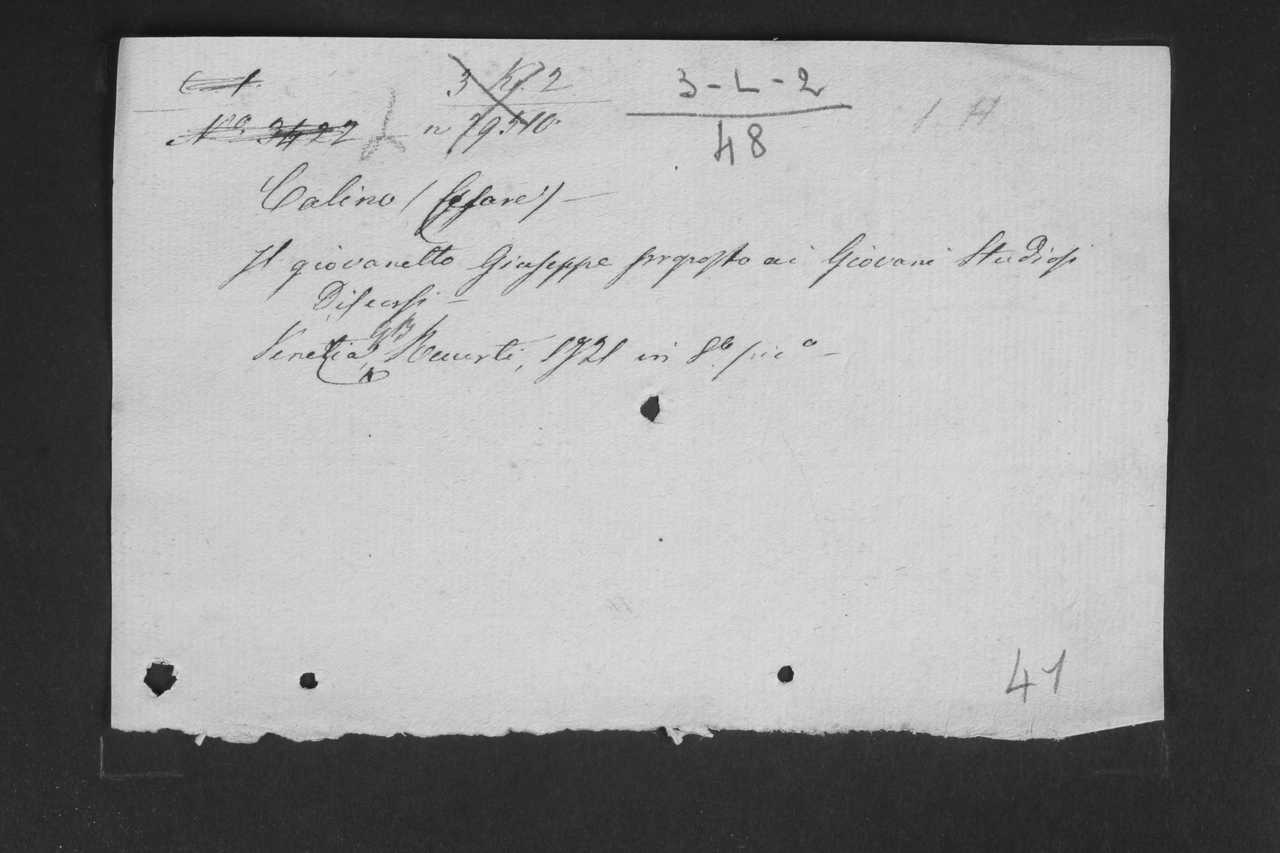 Nº. 3422
3-L-2
48
Calino (Cesare) -
Il giovanetto Giuseppe proposto ai Giovani Studiosi
Discorsi -
Venezia, GB Recurti, 1721 in 8º picº -
41